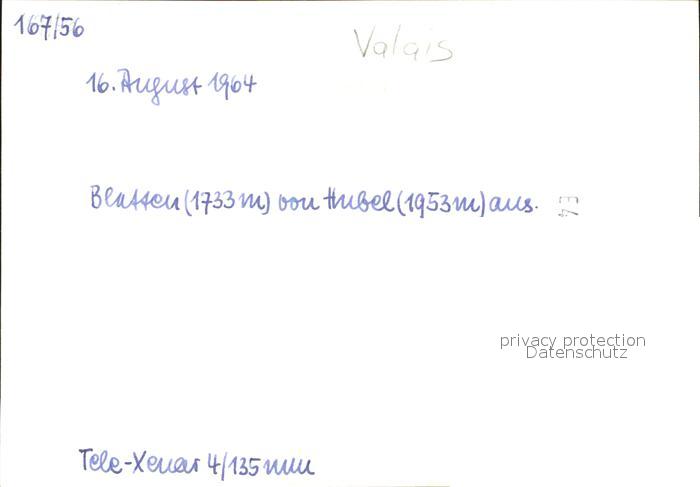 167/56
Valais
16. August 1964
Blatten (1733 m) von Hubel (1953 m) aus.
E4
privacy protection
Datenschutz
Tele-Xenar 4/135 mm